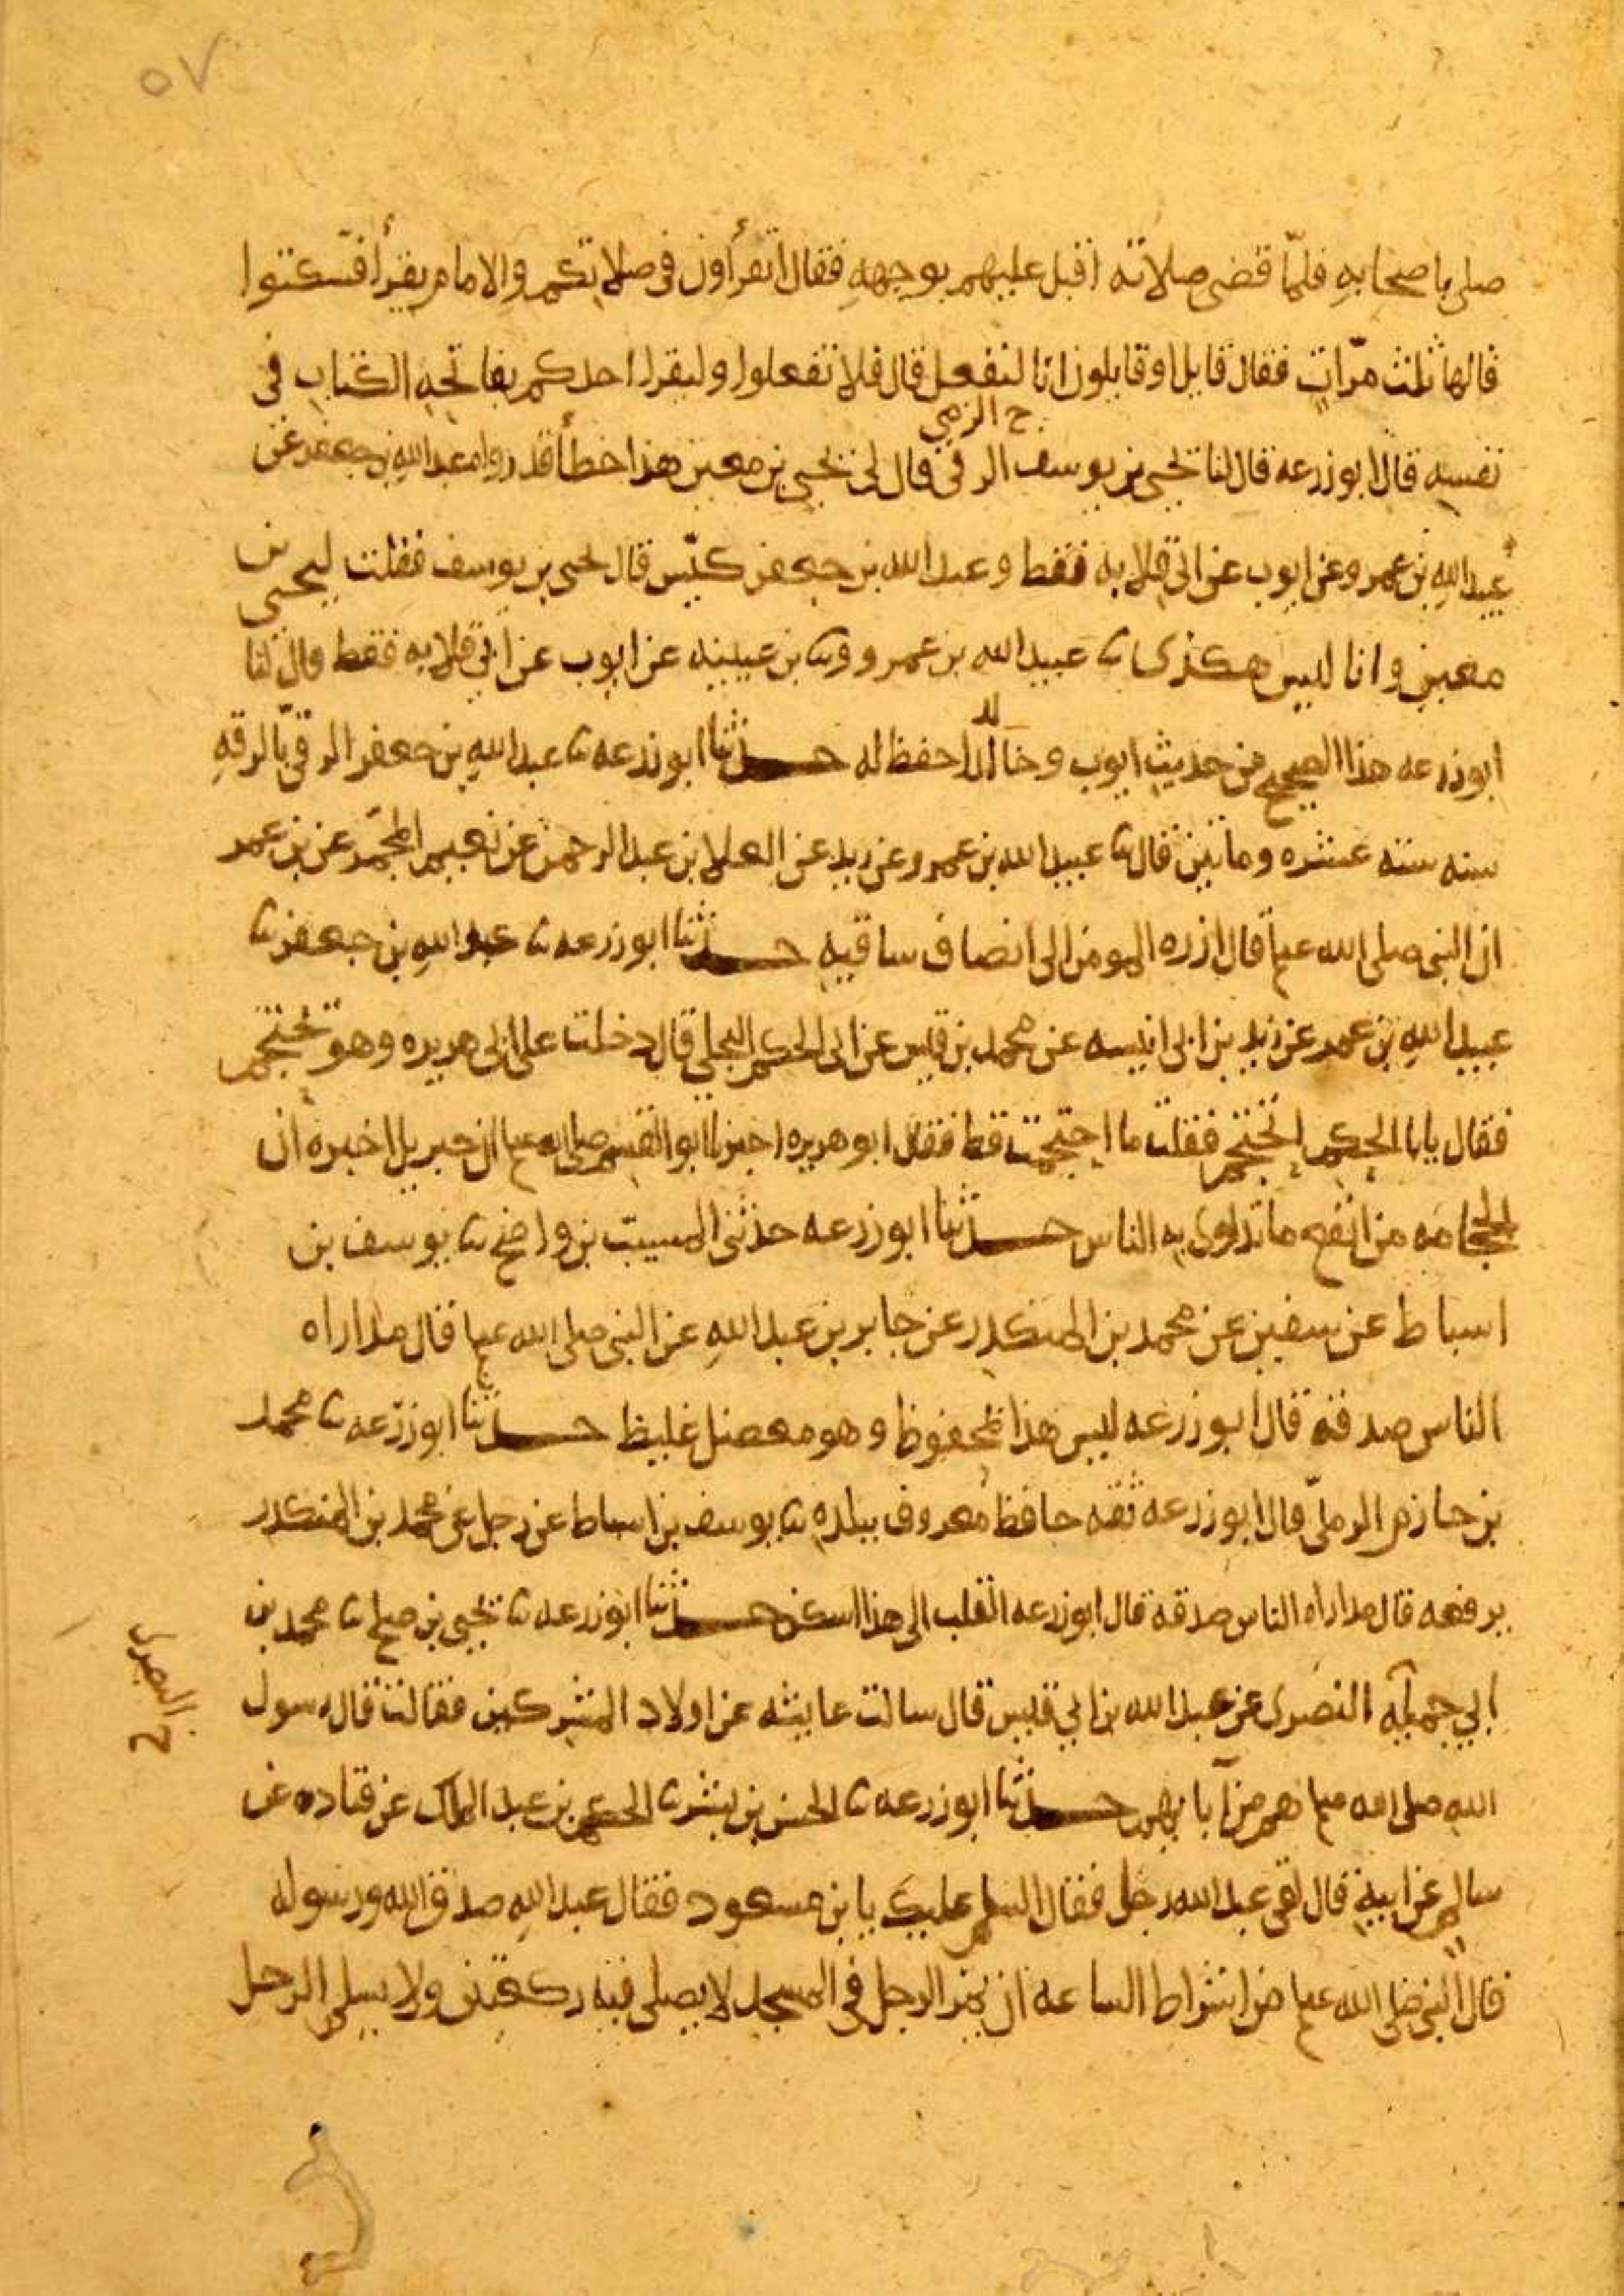 ٥٧
صلى باصحابه فلمّا قضى صلاته اقبل عليهم بوجهه فقال اتقرأون في صلاتكم والامام يقرأ فسكتوا
قالها ثلث مرّات فقال قايل او قايلون انا لنفعل قال فلا تفعلوا وليقرا احدكم بفاتحه الكتاب في
ح الزمي
نفسه قال ابو زرعه قال لنا يحيى بن يوسف الرقي قال لي يحيى بن معين هذا خطأ قد رواه عبد الله بن جعفر عن
عبيد الله بن عمرو عن ايوب عن ابي قلابه فقط وعبد الله بن جعفر كيّس قال يحيى بن يوسف فقلت ليحيى بن
معين وانا ليس هكذى ثنا عبيد الله بن عمرو وثنا بن عيينه عن ايوب عن ابي قلابه فقط قال لنا
ابو زرعه هذا الصحيح من حديث ايوب وخالد احفظ له حدثنا ابو زرعه ثنا عبد الله بن جعفر الرقي بالرقه
سنه سته عشره ومائتين قال ثنا عبيد الله بن عمرو عن زيد عن العلا بن عبد الرحمن عن نعيم المجمّر عن بن عمر
ان النبي صلى الله عليه قال ازره المومن الى انصاف ساقيه حدثنا ابو زرعه ثنا عبد الله بن جعفر ثنا
عبيد الله بن عمرو عن زيد بن ابي انيسه عن محمد بن قيس عن ابي الحكم البجلي قال دخلت على ابي هريره وهو يحتجم
فقال يابا الحكم احتجم فقلت ما احتجمت قط فقال ابو هريره اخبرنا ابو القسم صلى الله عليه ان جبريل اخبره ان
الحجامه من انفع ما تداوى به الناس حدثنا ابو زرعه حدثني المسيب بن واضح ثنا يوسف بن
اسباط عن سفين عن محمد بن المنكدر عن جابر بن عبد الله عن النبي صلى الله عليه قال مداراه
الناس صدقه قال ابو زرعه ليس هذا بمحفوظ وهو معضل غليظ حدثنا ابو زرعه ثنا محمد
بن حازم الرملي قال ابو زرعه ثقه حافظ معروف ببلده ثنا يوسف بن اسباط عن رجل عن محمد بن المنكدر
يرفعه قال مداراه الناس صدقه قال ابو زرعه القلب الى هذا اسكن حدثنا ابو زرعه ثنا يحيى بن صلح ثنا محمد بن
ابي جميله النصرى عن عبد الله بن ابي قيس قال سالت عايشه عن اولاد المشركين فقالت قال رسول
البصرى ح
الله صلى الله عليه هم من آبايهم حدثنا ابو زرعه ثنا الحسن بن بشر ثنا الحكم بن عبد الملك عن قتاده عن
سالم عن ابيه قال لقي عبد الله رجل فقال السلم عليك يا بن مسعود فقال عبد الله صدق الله ورسوله
قال النبي صلى الله عليه من اشراط الساعه ان يمر الرجل في المسجد لا يصلي فيه ركعتين ولا يسلم الرجل